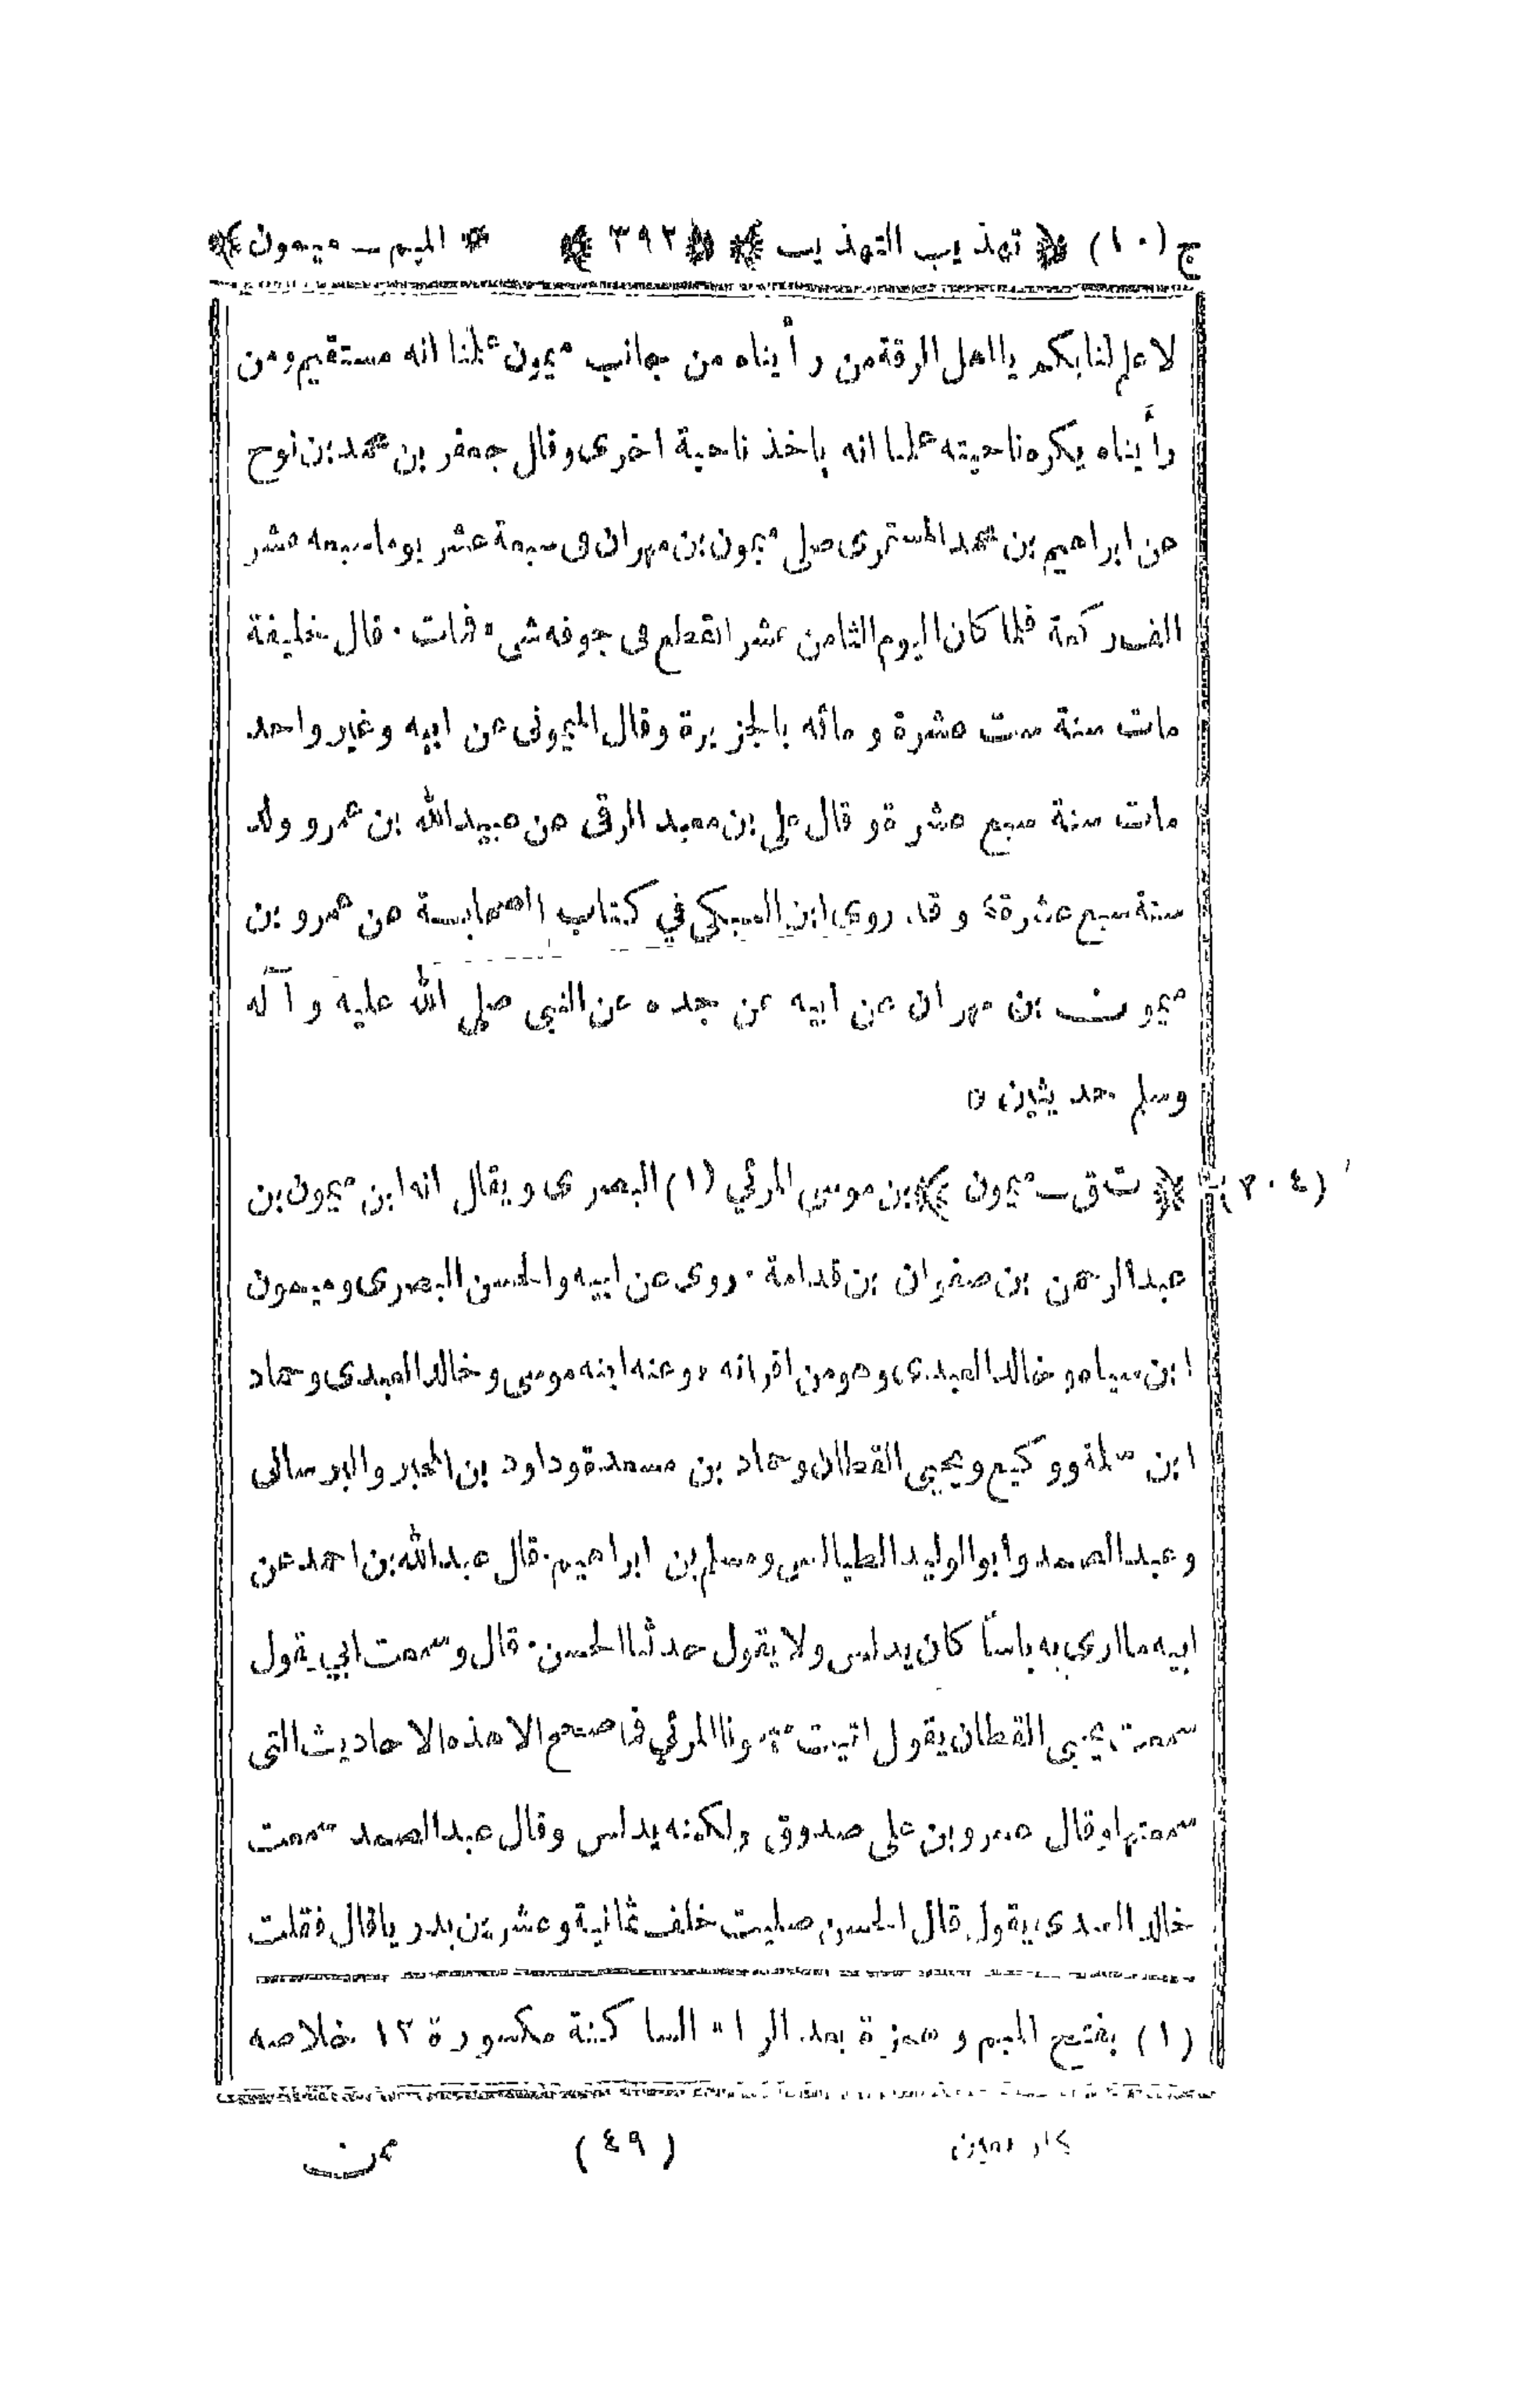 ج (١٠) ﴿ تهذيب التهذيب ﴾ ﴿ ٣٩٢ ﴾ * الميم ـ ميمون ﴾
لا علم لنا بكم يا اهل الرقة من رأيناه من جانب ميمون علمنا انه مستقيم ومن
رأيناه يكره ناحيته علمنا انه ياخذ ناحية اخرى وقال جعفر بن محمد بن نوح
عن ابراهيم بن محمد السمرى صلى ميمون بن مهران فى سبعة عشر يوما سبعه عشر
الف ركعة فلما كان اليوم الثامن عشر انقطع فى جوفه شىء فمات ٠ قال خليفة
مات سنة ست عشرة و مائه بالجزيرة وقال الميمونى عن ابيه وغير واحد
مات سنة سبع عشرة و قال على بن معبد الرقى عن عبيدالله بن عمرو ولد
سنة سبع عشرة و قد روى ابن السكى في كتاب الصحابة عن عمرو بن
ميمون بن مهران عن ابيه عن جده عن النبى صلى الله عليه وآله
وسلم حديثين ٥
(٧٠٤) ﴿ ت ق ـ ميمون ﴾ بن موسى المرئي (١) البصرى ويقال انه ابن ميمون بن
عبدالرحمن بن صفوان بن قدامة ٠ روى عن ابيه والحسن البصرى وميمون
ابن سياه و خالد العبدى وهو من اقرانه ٠ وعنه ابنه موسى وخالد العبدى وحماد
ابن سلمة ووكيع ويحيى القطان وحماد بن مسعدة وداود بن المحبر والبرسانى
وعبد الصمد وابو الوليد الطيالسى ومسلم بن ابراهيم ٠ قال عبدالله بن احمد عن
ابيه ما ارى به باسا كان يدلس ولا يقول حدثنا الحسن ٠ قال وسمعت ابي يقول
سمعت يحيى القطان يقول اتيت ميمونا المرئي فما صحح الا هذه الاحاديث التى
سمعتها وقال عمرو بن على صدوق ولكنه يدلس وقال عبد الصمد سمعت
خالد العبدى يقول قال الحسن صليت خلف ثمانية وعشرين بدريا قال فقلت
(١) بفتح الميم و همزة بعد الراء الساكنة مكسورة ١٢ خلاصه
(٤٩)
ممن